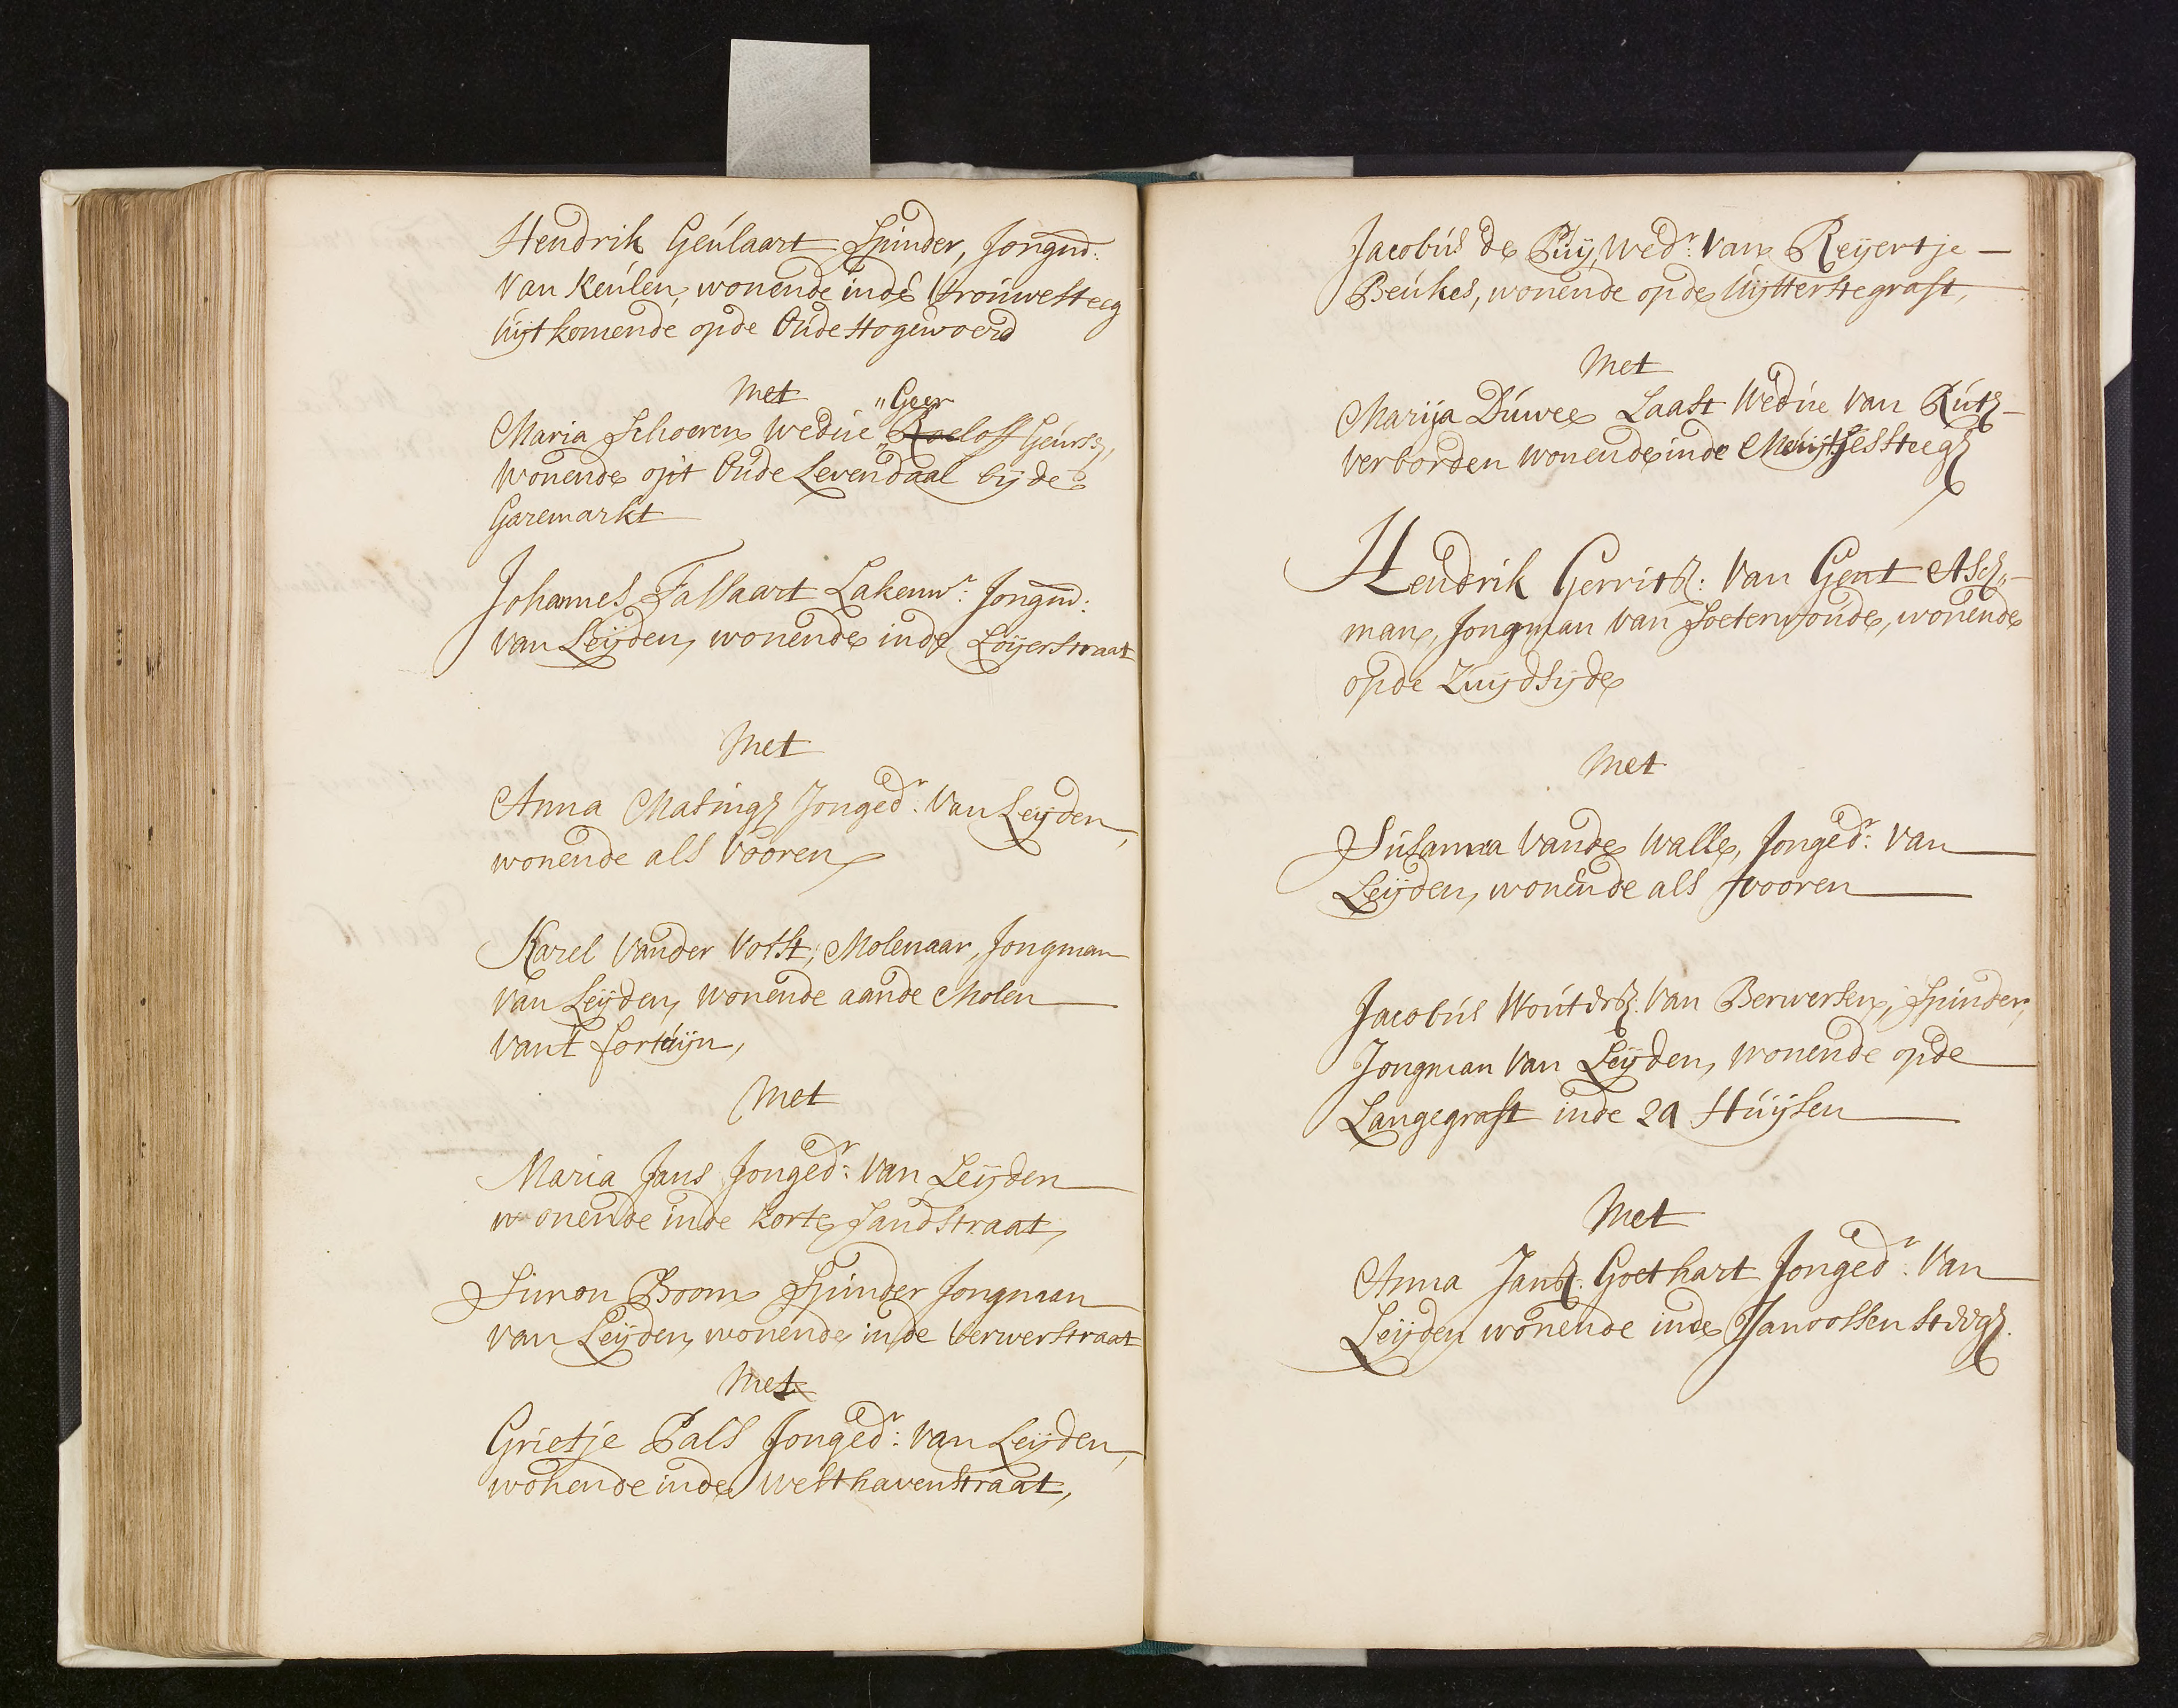 Hendrik Geulaart Spinder, Jongm:
van Keulen, wonende inde Vrouwesteeg
uijtkomende opde Oude Hogewoerd
Met
„Geer
Maria Schoeren Wedue „Roeloff Geurss,
wonende op't Oude Levendaal bij de
Garemarkt
Johannes Fassaart Lakenwr: Jongm:
van Leijden, wonende inde Loijerstraat
Met
Anna Masingz Jongedr: van Leijden,
wonende als vooren
Karel vander Votst, Molenaar, Jongman
van Leijden, wonende aande Molen
van't fortuijn,
Met
Maria Jans Jongedr: van Leijden
wonende inde korte Sandstraat,
Simon Boom Spinder Jongman
van Leijden, wonende inde Verwerstraat
Met
Grietje Pals Jongedr: van Leijden,
wonende inde Westhavenstraat,
Jacobus de Puij, Wedr: van Reijertje
Beukes, wonende opde Uijtterstegraft,
Met
Marija Duwee Laast Wedue van Rutz
verborden wonende inde steegz
Hendrik Gerritsz: van Gent Asch-
man, Jongman van Soeterwoude, wonende
opde Zuijdsijde
Met
Susanna vande Walle, Jongedr: van
Leijden, wonende als vooren
Jacobus Woutersz: van Berwersen, Spinder,
Jongman van Leijden, wonende opde
Langegraft inde 29 Huijsen
Met
Anna Jansz: Goethart Jongedr: van
Leijden wonende inde Janvossensteegz.